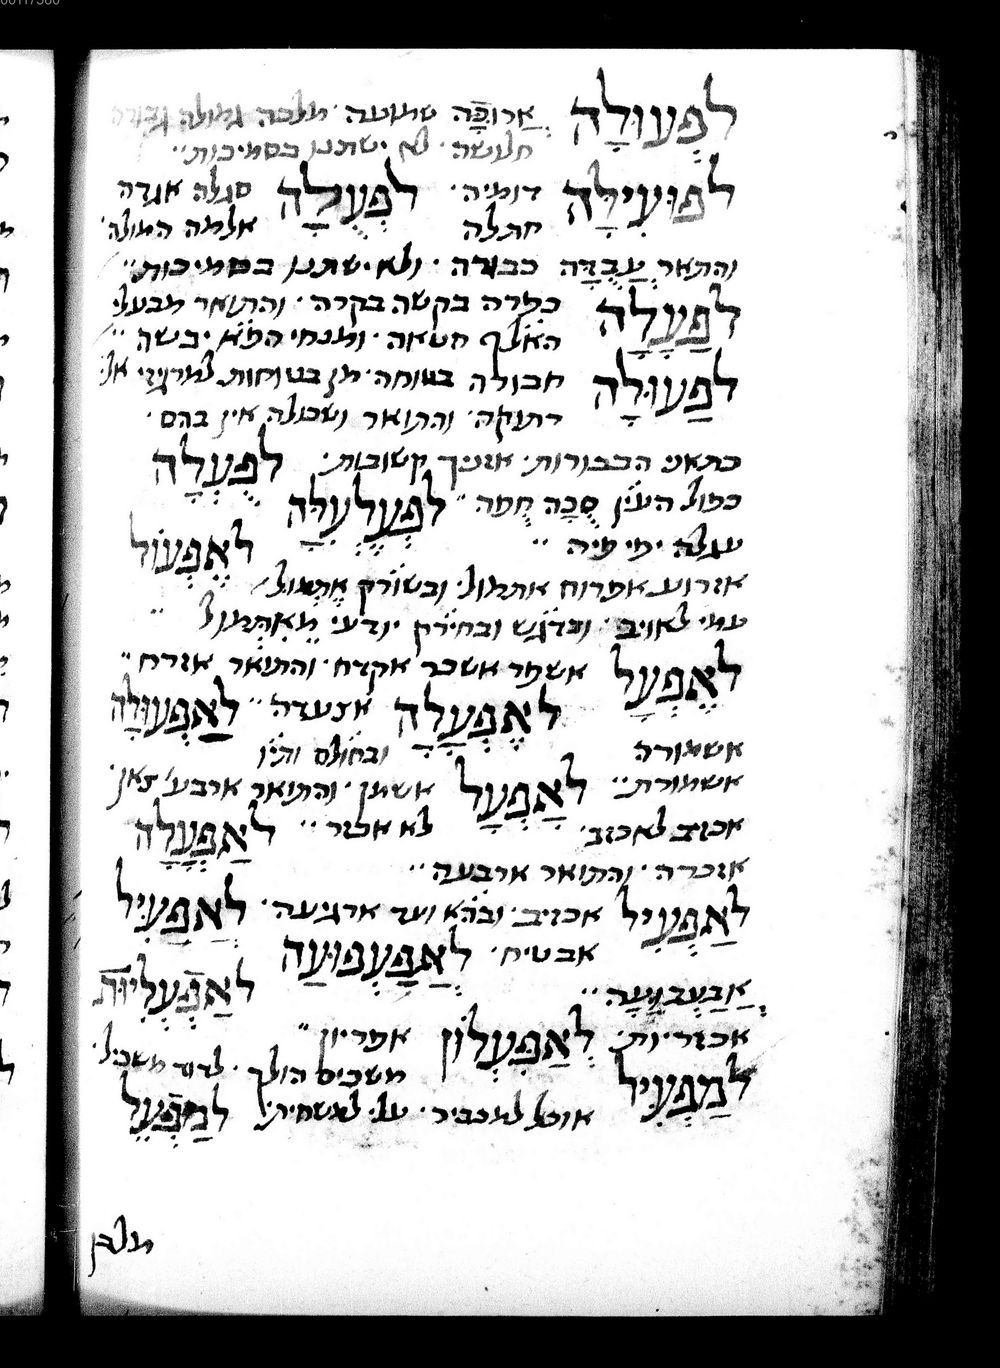 לִפְעוּלָה אֲרוּכָה שמועה מלכה גדולה גבורה
חלושה לא ישתנו בסמיכות
לפוּעִילָה דומיה לִפְעֻלָה סגלה אגדה
חתלה אלמה המולה
והתאר עֲבֻדָה כבודה ולא ישתנו בסמיכות
לְפַעָלָה כפרה בקשה בקרה והתואר מבעלי
האלף חטאה ומנחי הפא יבשה
לְפַעוּלָה חבולה בטוחה מן בטוחות למרגיזי אל
דתנקה והתואר ושכולה אין בהם
כתאני הבכורות אזניך קשובות לְפֻעְלָה
כפול העין סֻכָּה חֻפה לִפְעֲלְעֻלָה
עגלה יפי פיה לְאֶפְעוֹל
אזרוע אפרוח אתמול ובשורק אֶתְמוּל
עמי לאויב ובדגש ובחירק יודעי מֵאִתְּמוּל
לְאֶפְעָל אשפר אשכר אקדח והתואר אזרח
לְאֶפְעָלָה אצעדה לְאַפְעוּלָה
אשמורה ובחולם ותיו
אשמורת לְאַפְעָל אשמן והתואר ארבע צאן
אכזב לאכזב לא אכזר לְאַפְעָלָה
אזכרה והתואר ארבעה
לְאַפְעִיל אכזיב ובהא ועד ארגיעה לְאַפַּעִיל
אבטיח לְאֲפַעְפוּעָה
אֲבַעְבֻּעָה לְאַפְעְלִיוּת
אכזריות לְאַפִּעְלוֹן אפריון
לְמַפְעִיל משכיל הולך לדוד משכיל
אוכל למכביר על למשחית לְמַפְעֵל
מלבן